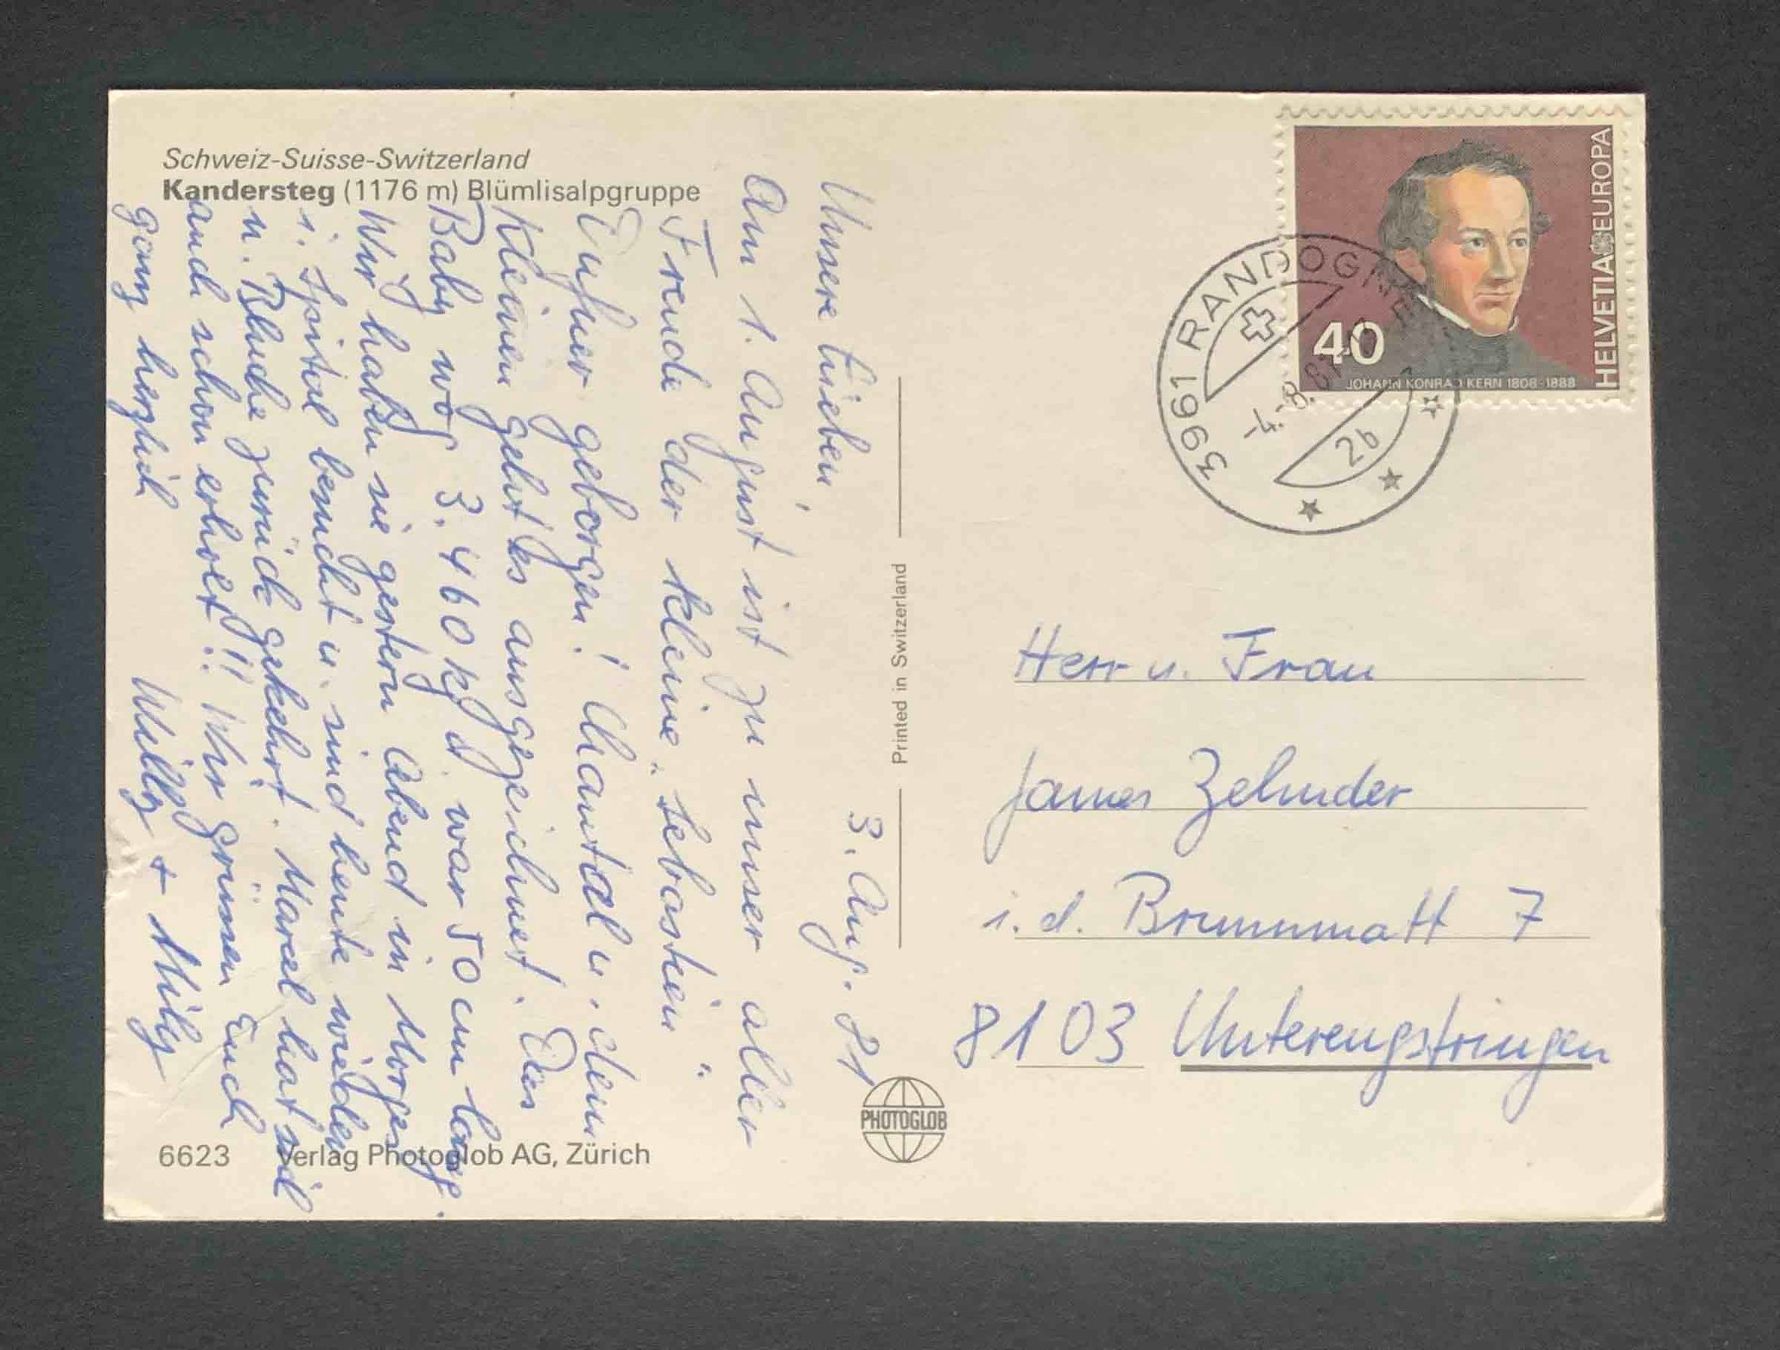 Schweiz-Suisse-Switzerland
Kandersteg (1176 m) Blümlisalpgruppe
3. Aug. 81
Unsere Lieben,
Am 1. August ist zu unser aller
Freude der kleine "Sebastien"
Dufner geboren! Chantal u. dem
Kleinen geht es ausgezeichnet. Das
Baby wog 3.460 kg & war 50 cm lang.
Wir haben sie gestern Abend in Morges
i. Spital besucht u. sind heute wieder
n. Bluche zurück gekehrt. Marcel hat sich
auch schon erholt!! Wir grüssen Euch
ganz herzlich Willy + Milly
6623 Verlag Photoglob AG, Zürich
Printed in Switzerland
PHOTOGLOB
HELVETIA EUROPA
40
JOHANN KONRAD KERN 1808-1888
3961 RANDOGNE
-4.-8.81
2b
Herr u. Frau
James Zehnder
i. d. Brunnmatt 7
8103 Unterengstringen